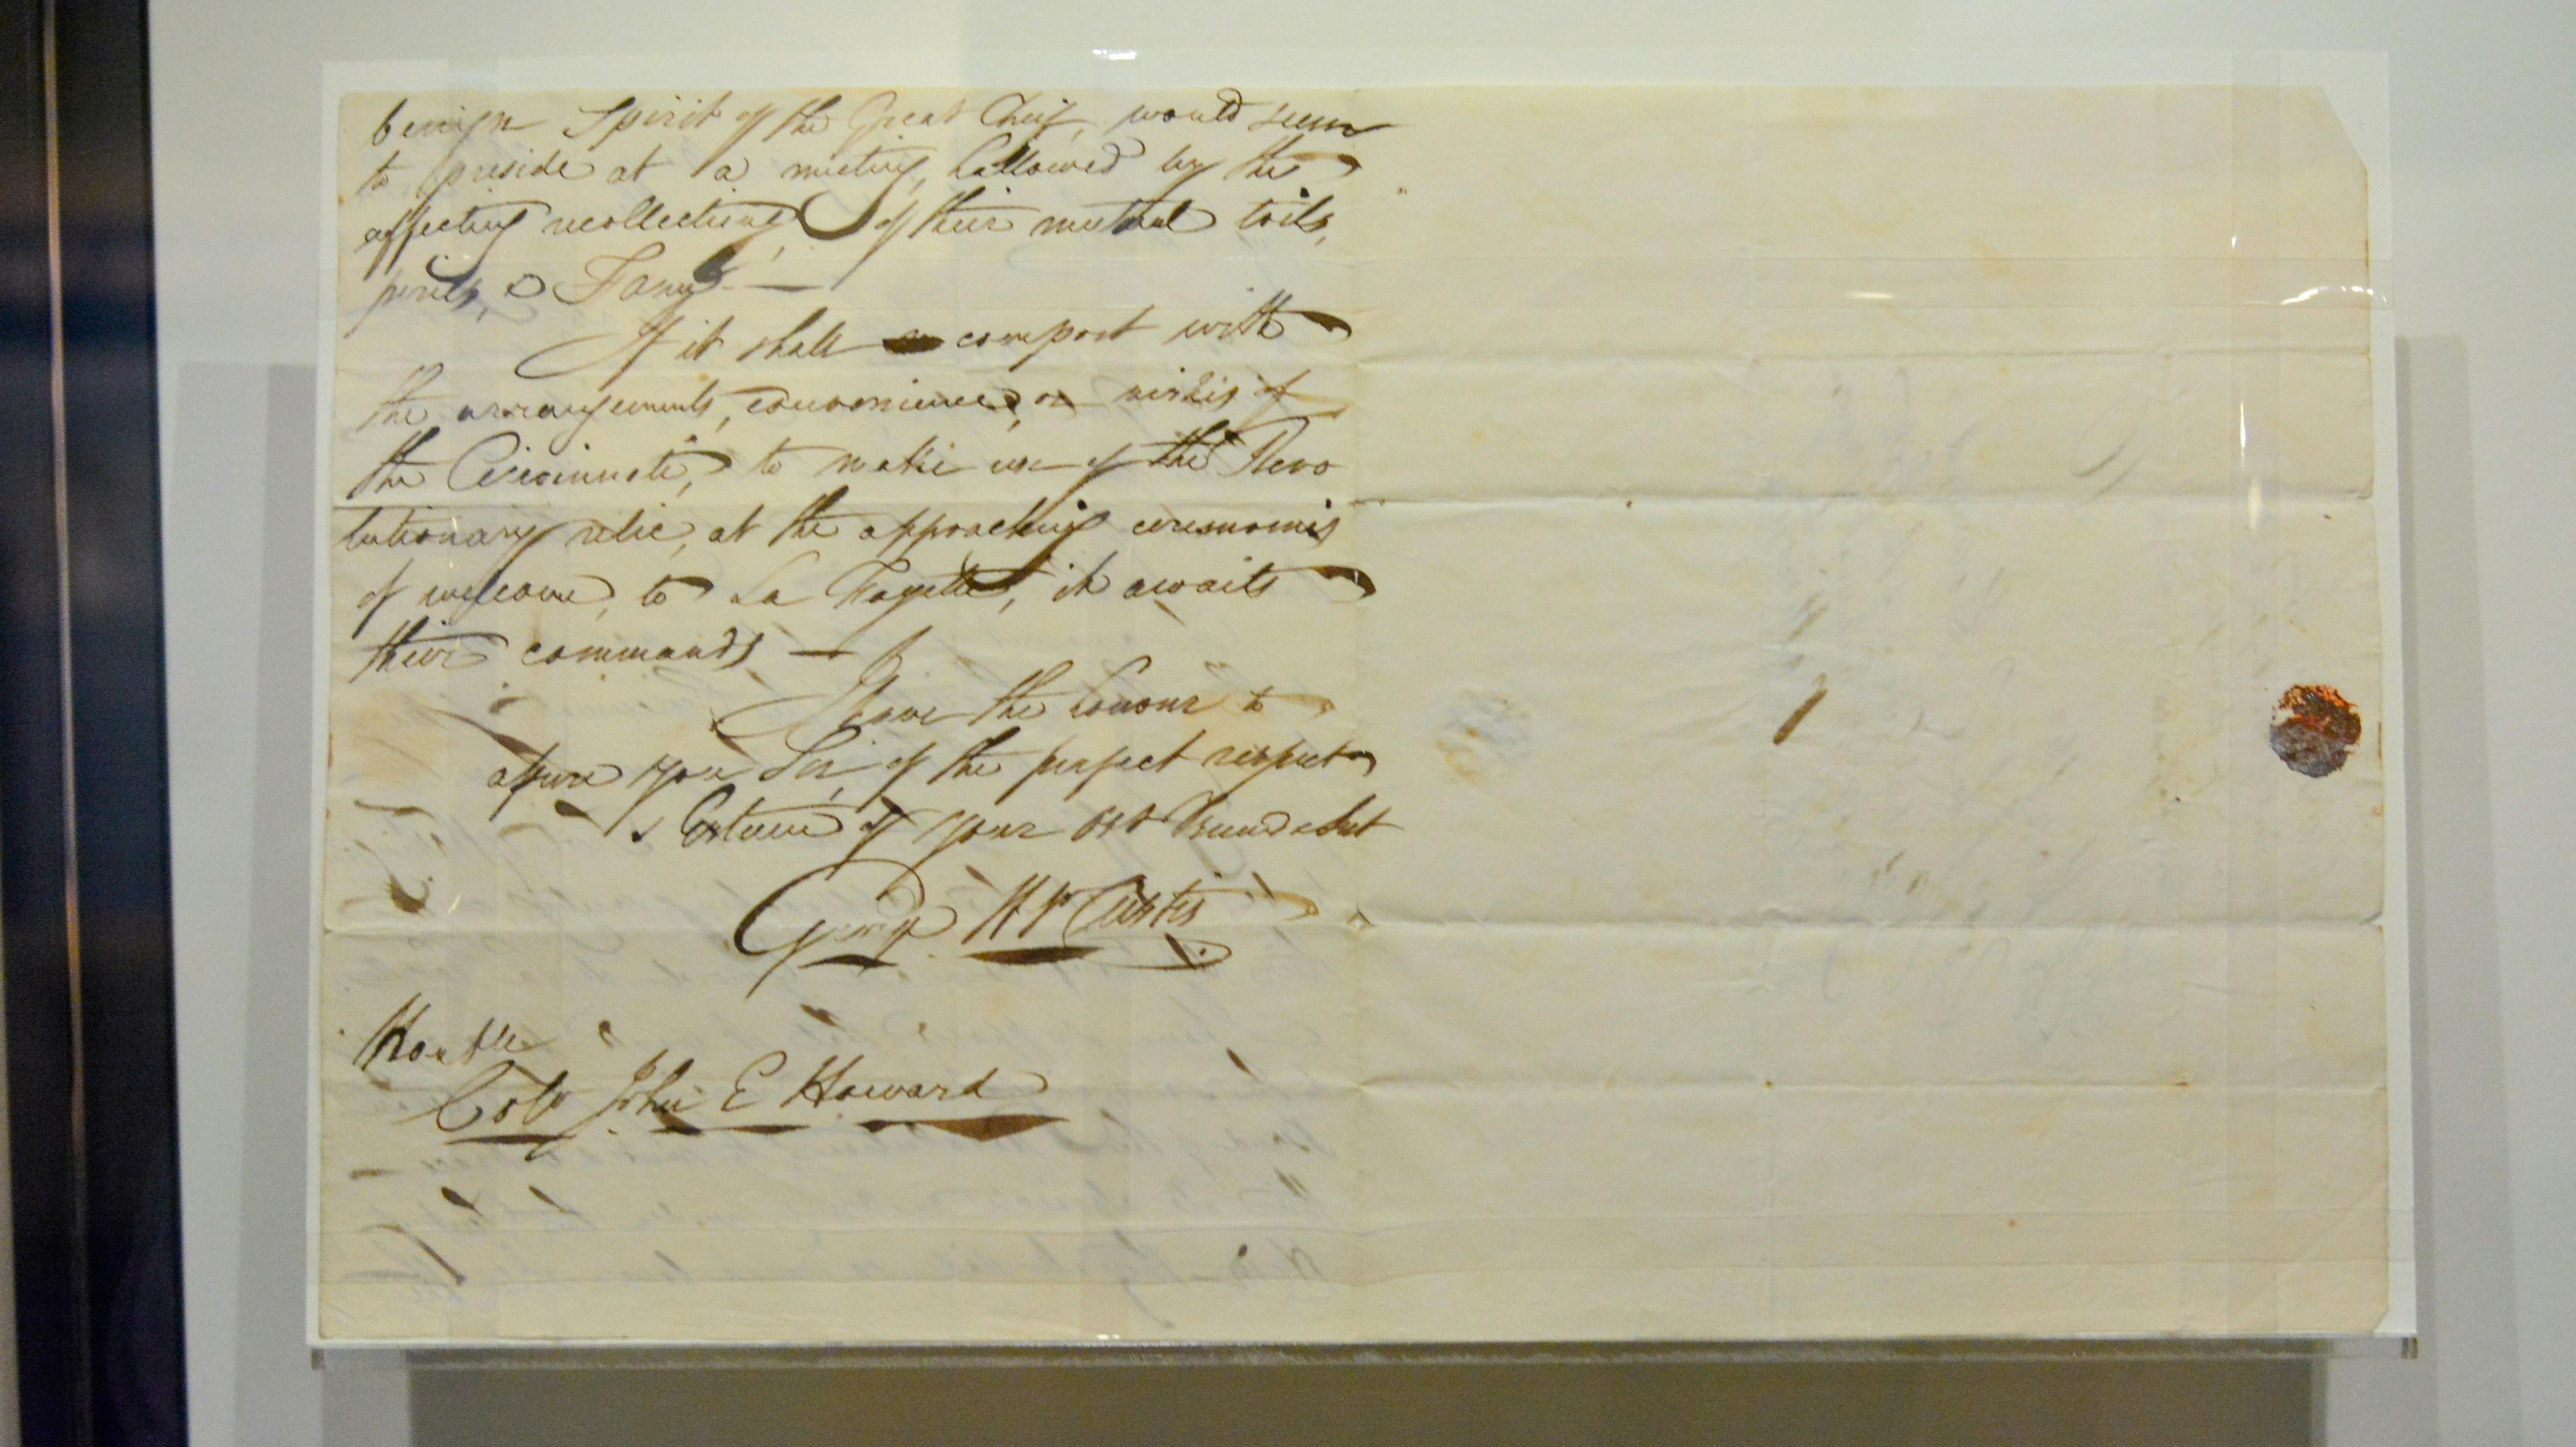 benign Spirit of the Great Chief, would seem
to preside at a meeting, hallowed by the
affecting recollections, of their mutual toils,
perils, & Fame —
If it shall comport with
the arrangements, convenience, or wishes of
the Cincinnati, to make use of the Revo
lutionary relic, at the approaching ceremonies
of welcome, to La Fayette, it awaits
their commands —
I have the honour to
assure you Sir, of the perfect respect
& Esteem of your Obt
George W P Custis
Honble
Colo John E Howard